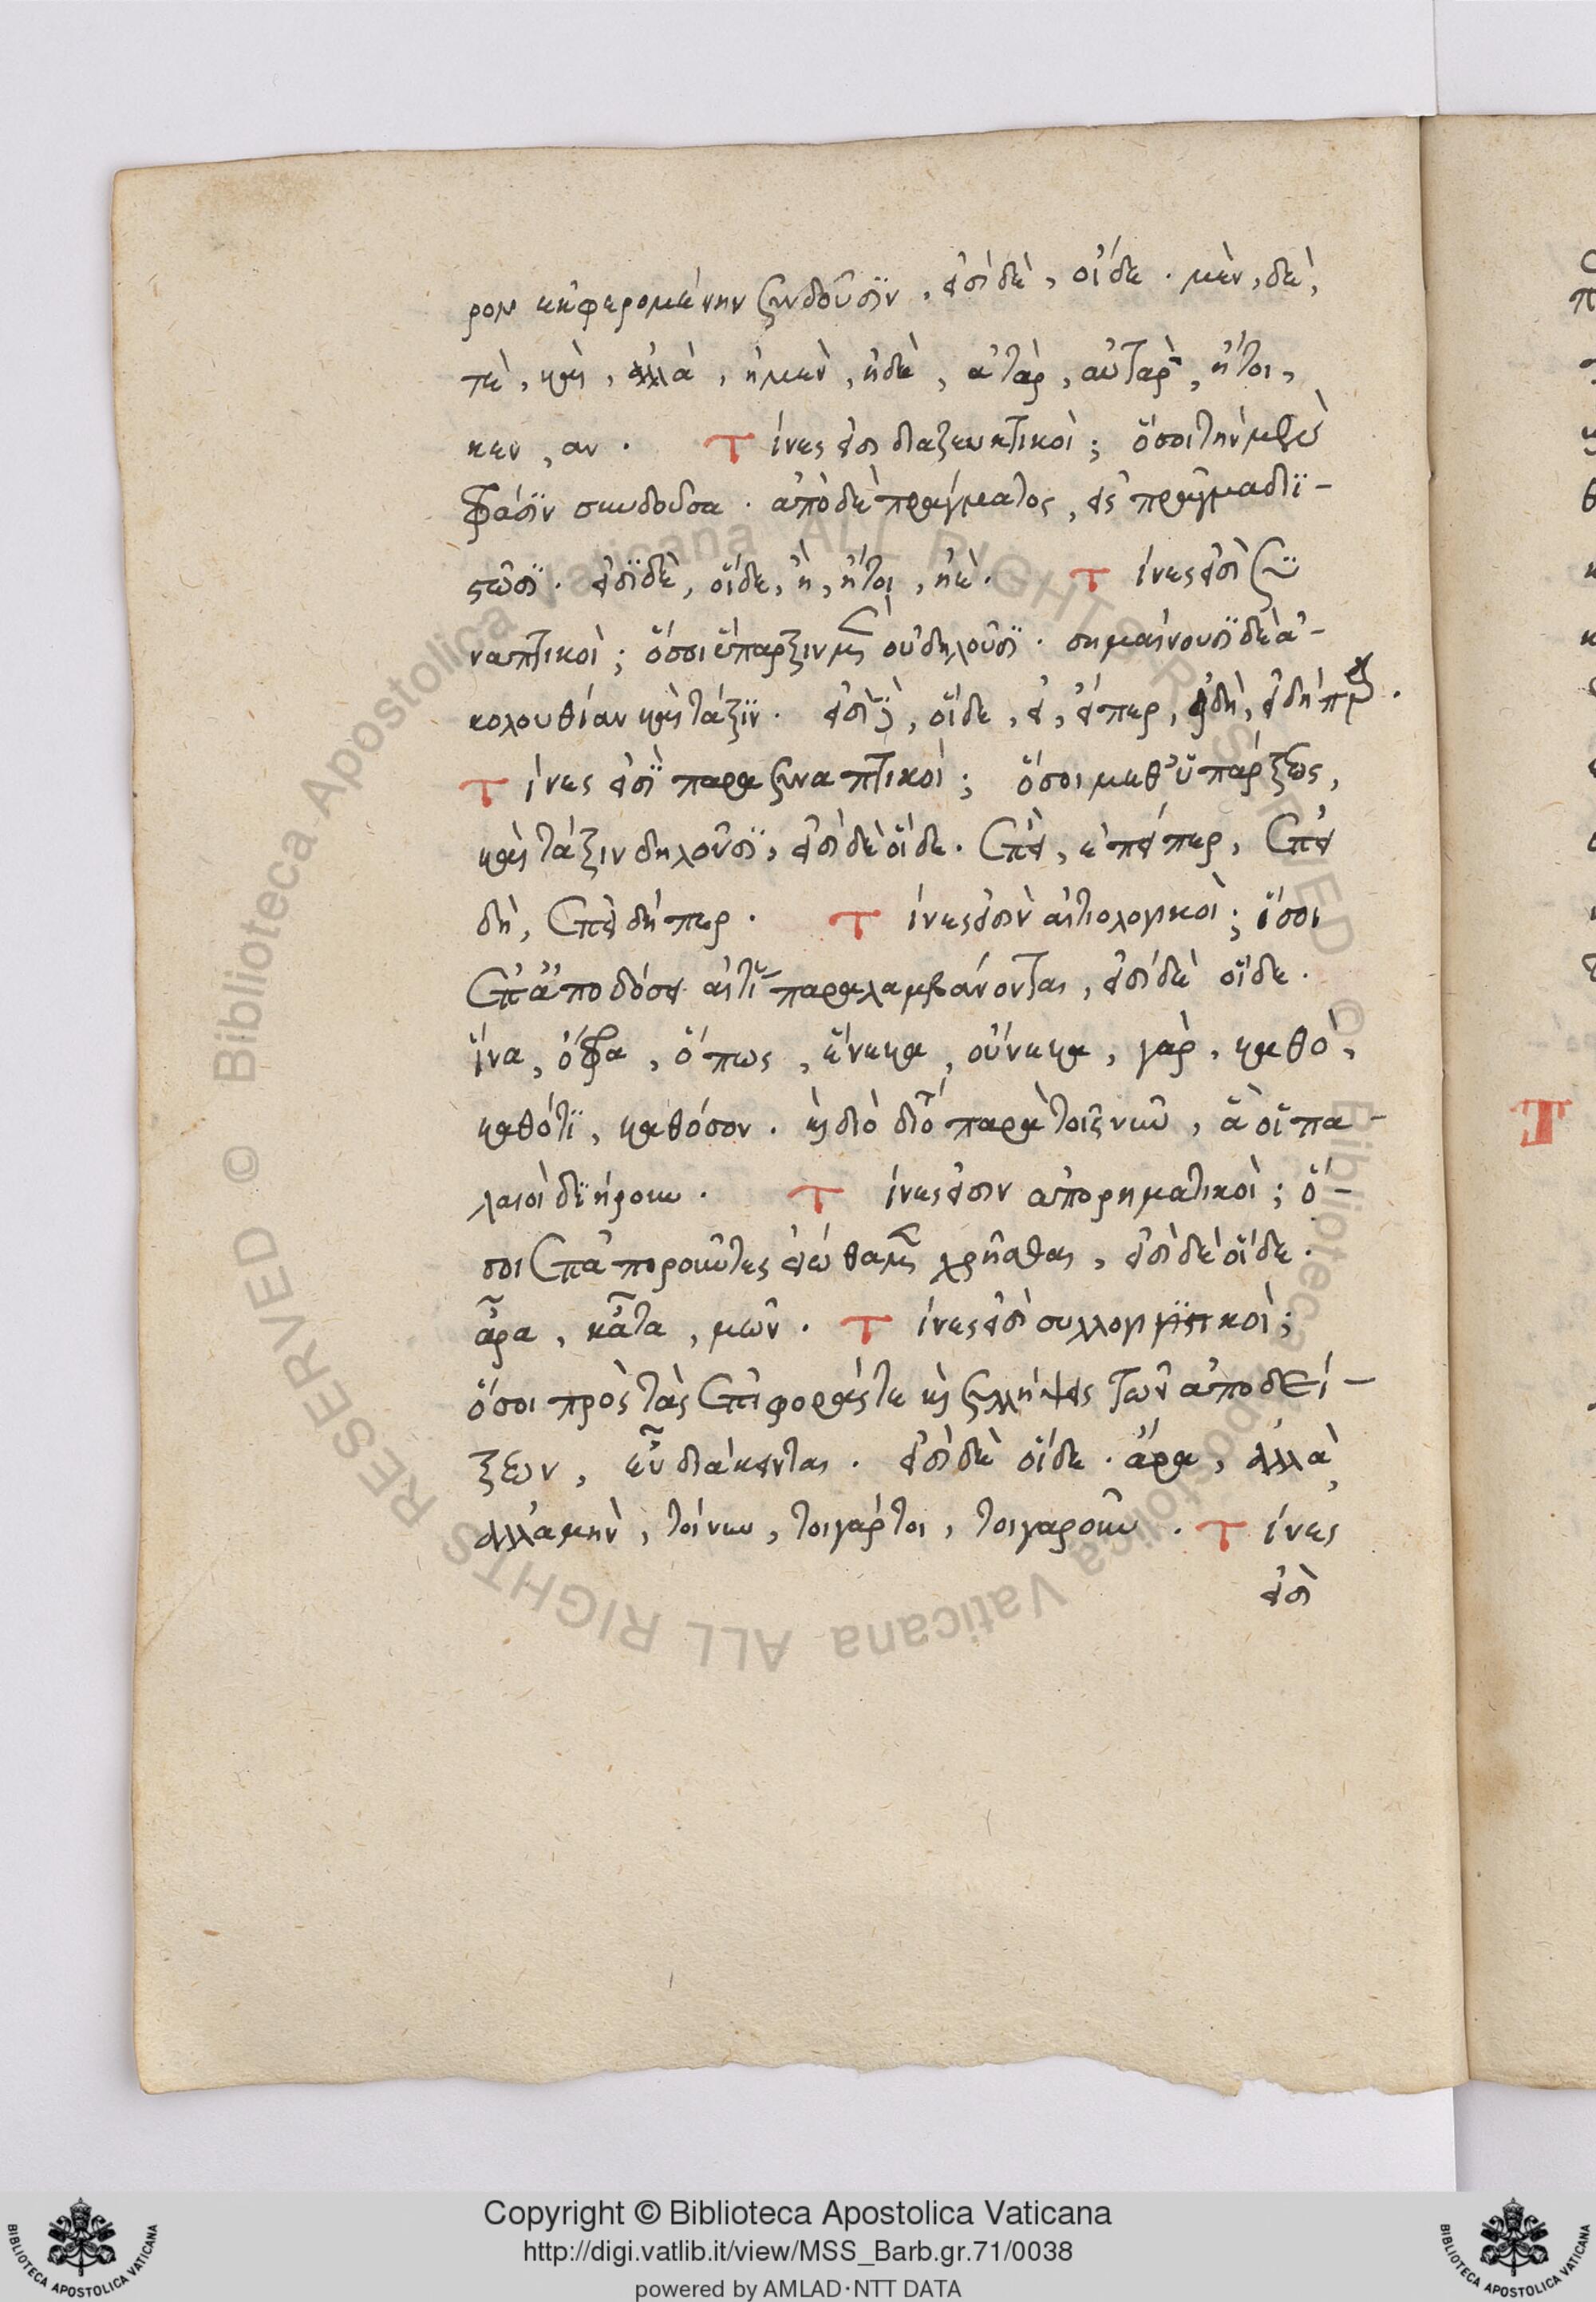 ρον ἐκφερομένην συνδοῦσϊν, εἰσὶ δὲ, οἵδε. μὲν, δὲ,
τὲ, καὶ, ἀλλὰ, ἠμὲν, ἠδὲ, ἀτὰρ, αὐτὰρ, ἤτοι,
κεν, αν. Τίνες εἰσι διαζευκτικοὶ; ὅσοι τὴν μὲν
φράσϊν συνδοῦσα. ἀπὸ δὲ πράγματος, εἰς πράγμα διϊ-
στῶσϊ. εἰσϊ δὲ, οἵδε, ἢ, ἤτοι, ἠὲ. Τίνες εἰσὶ συ
ναπτικοὶ; ὅσοι ὕπαρξιν μὲν οὐ δηλοῦσϊ. σημαίνουσϊ δὲ ἀ-
κολουθίαν καὶ τάξϊν. εἰσὶ δὲ, οἵδε, εἰ, εἴπερ, εἰδὴ, εἰδήπερ.
Τίνες εἰσϊ παρασυναπτικοί; ὅσοι μεθ' ὑπάρξεως,
καὶ τάξιν δηλοῦσϊ, εἰσὶ δὲ οἵδε. ἐπεὶ, ἐπείπερ, ἐπει
δὴ, ἐπειδήπερ. Τίνες εἰσὶν αἰτιολογικοὶ; ὅσοι
ἐπ' ἀποδόσει αἰτίας παραλαμβάνονται, εἰσὶ δὲ οἵδε.
ἵνα, ὄφρα, ὅπως, ἕνεκα, οὕνεκα, γὰρ, καθὸ,
καθότϊ, καθόσον. καὶ διὸ διότι παρὰ τοῖς νεω, ἃ οἱ πα-
λαιοὶ διῄρουν. Τίνες εἰσιν ἀπορηματικοὶ; ὅ-
σοι ἐπαποροῦντες εἰώθαμεν χρῆσθαι, εἰσὶ δὲ οἵδε.
ἆρα, κᾆτα, μῶν. Τίνες εἰσὶ συλλογιστικοὶ;
ὅσοι πρὸς τὰς ἐπιφοράς τε καὶ συλλήψεις τῶν ἀποδεί-
ξεων, εὖ διάκεινται. εἰσὶ δὲ οἵδε. ἄρα, ἀλλὰ,
ἀλλαμὴν, τοίνυν, τοιγάρτοι, τοιγαροῦν. Τίνες
εἰσὶ
Copyright © Biblioteca Apostolica Vaticana
http://digi.vatlib.it/view/MSS_Barb.gr.71/0038
powered by AMLAD·NTT DATA